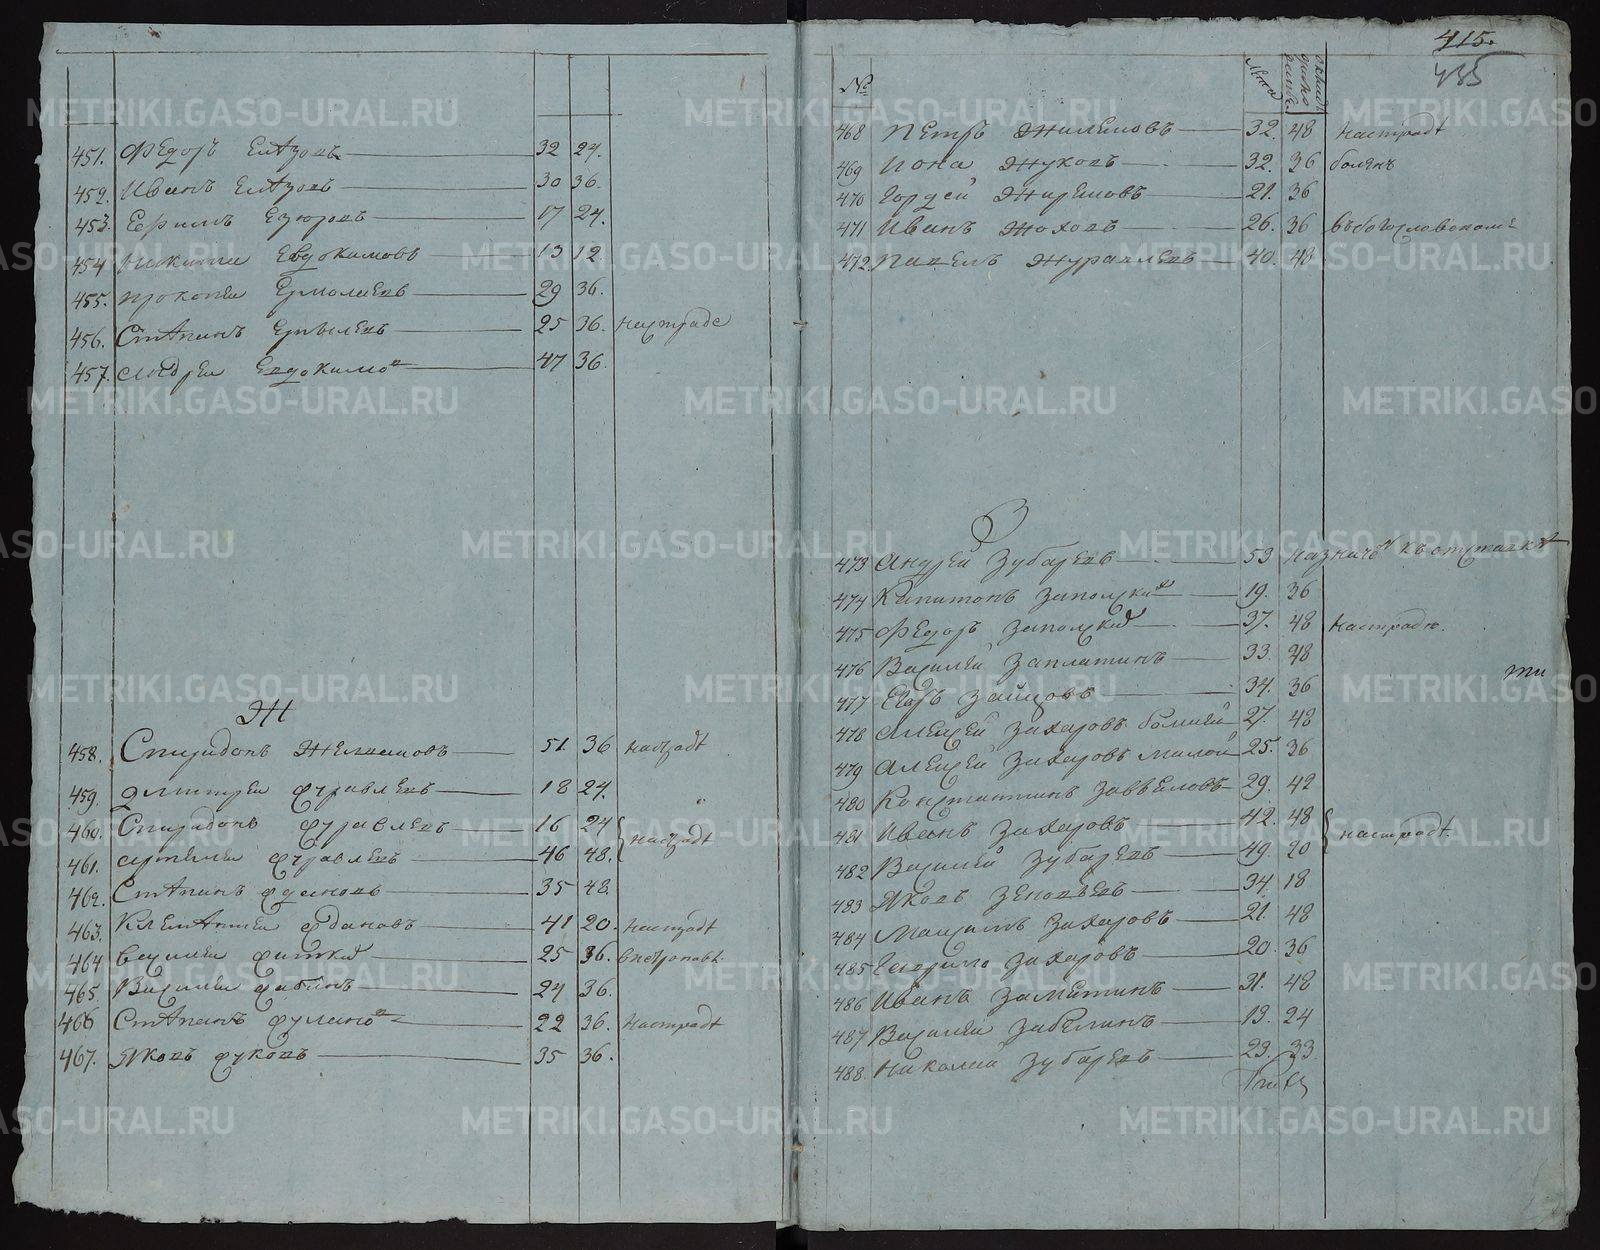 451. Федоръ Елѣзовъ 32 24.
452. Иванъ Елѣзовъ 30 36.
453. Ефимъ Езюровъ 17 24.
454 Никита Евдокимовъ 13 12
455. Прокопеи Ермолаевъ 29 36.
456. Степанъ 25 36. настраде
457. Андреи Евдокимовъ 47 36.
Ж
458. Спиридонъ 51. 36 настрадѣ
459. Дмитреи Журавлевъ 18 24.
460. Спиридонъ Журавлевъ 16 24
461. Артемеи Журавлевъ 46 48. настрадѣ
462. Степанъ Ждановъ 35 48.
463. Клементеи Ждановъ 41 20. настрадѣ
464 Василеи 25 36.
465. Василеи 24 36.
466 Степанъ 22 36. настрадѣ
467. Яковъ Жуковъ 35 36.
415.
435
№ Лѣта
468 Петръ 32. 48 настрадѣ
469 Иона Жуковъ 32. 36 боленъ
470 Гордей 21. 36
471 Иванъ Жоховъ 26. 36 въ богословскомъ
472. Павелъ Журавлевъ 40. 48
З
473 Андрей Зубаревъ 53 назначъ къ отставкѣ
474 Капитонъ Запольский 19. 36
475 Федоръ Запольский 37. 48 настрадѣ.
476 Василей Заплатинъ 33 48
477 Егоръ Зайцовъ 34. 36
478 Алексей Захаровъ большей 27. 48
479 Алексей Захаровъ малой 25. 36
480 Константинъ 29. 42
481 Иванъ Захаровъ 42. 48
482 Василей Зубаревъ 49. 20 настрадѣ.
483 Яковъ Зеновьевъ 34. 18
484 Максимъ Захаровъ 21. 48
485 Гаврило Захаровъ 20. 36
486 Иванъ Заметинъ 31. 48
487 Василеи Забелинъ 13. 24
488. Николай Зубаревъ 23. 33
METRIKI.GASO-URAL.RU